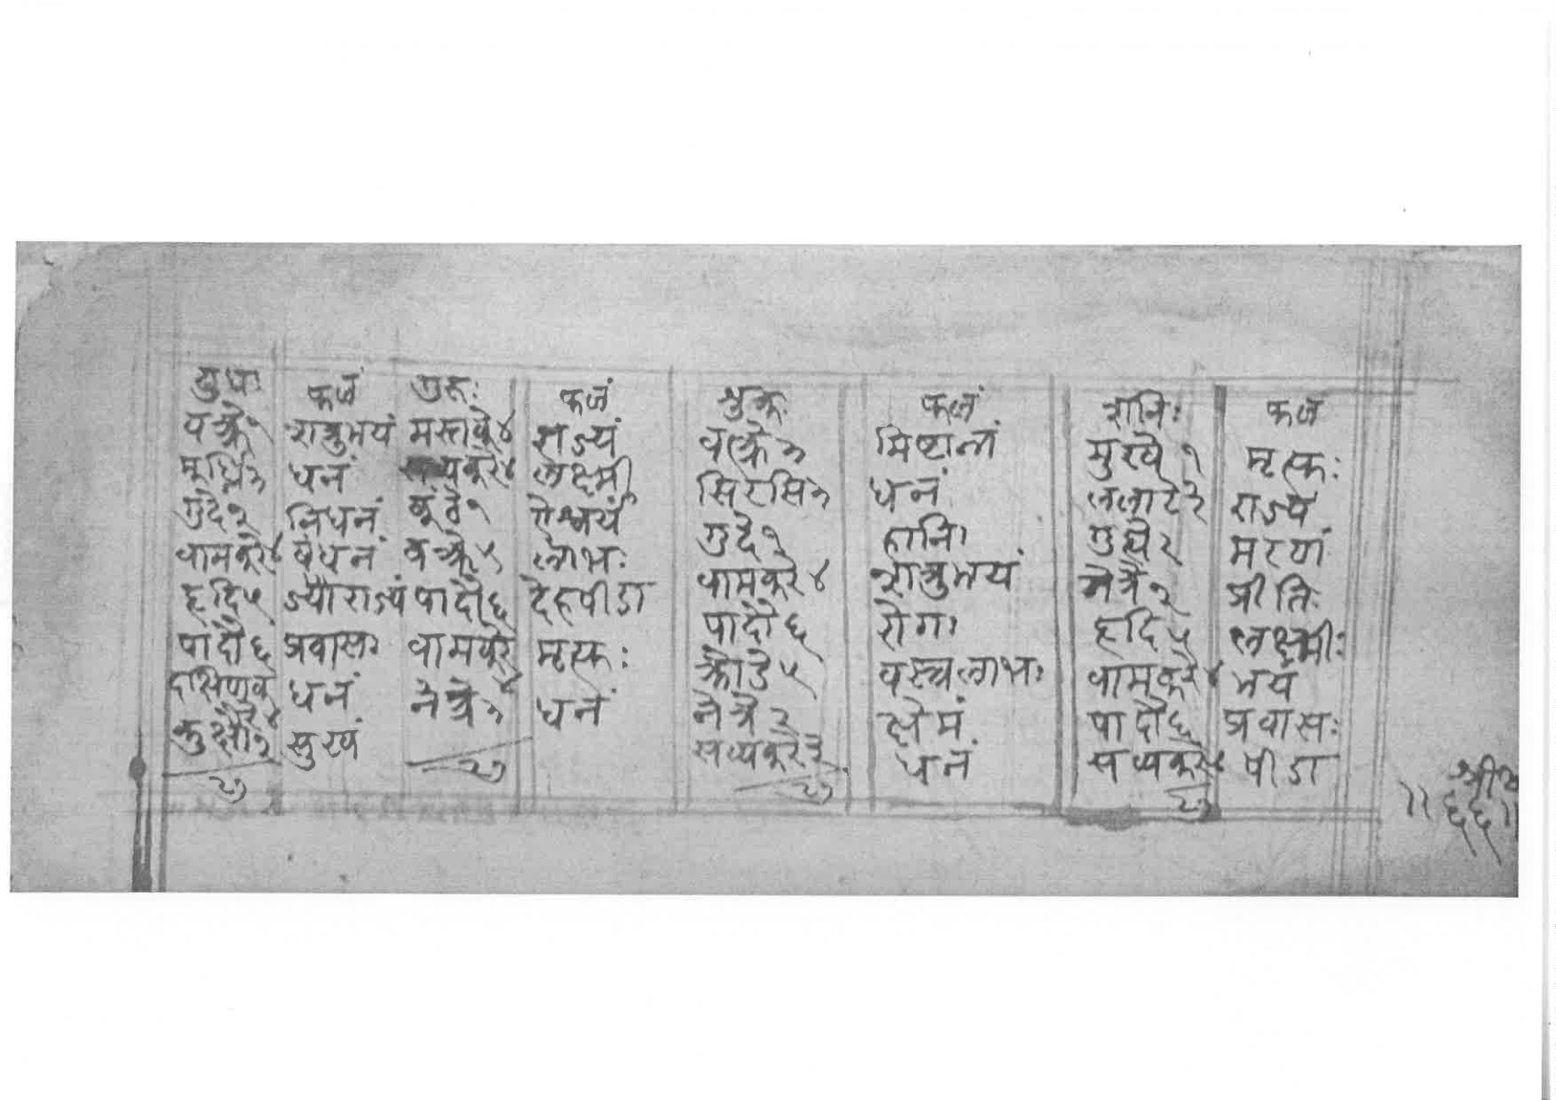 बुधः फलं गुरुः फलं शुक्रः फलं शनिः फलं
वक्त्रे १ शत्रुभयं मस्तके ४ राज्यं वक्त्रे ३ मिष्टान्नं मुखे १ मृत्युः
मूर्ध्नि ३ धनं सव्यकरे ४ लक्ष्मी सिरसि ३ धनं ललाटे ३ राज्यं
गुदे १ निधनं कंठे १ ऐश्वर्यं गुदे १ हानिः गुह्ये २ मरणं
वामकरे ४ बंधनं वक्त्रे ५ लाभः वामकरे ४ शत्रुभयं नेत्रे २ प्रीतिः
हृदि ५ राज्यं पादौ ६ देहपीडा पादौ ६ रोगः हृदि ५ लक्ष्मीः
पादौ ६ प्रवासः वामकरे ४ मृत्युः क्रोडे ५ वस्त्रलाभः वामकरे ४ भयं
दक्षिणक धनं नेत्रे ३ धनं नेत्रे २ क्षेमं पादौ ६ प्रवासः
रे ४ कुक्षौ सुखं सव्यकरे ३ धनं सव्यकरे ४ पीडा
२७ २७ २७ २७
श्री
॥ ६६ ॥